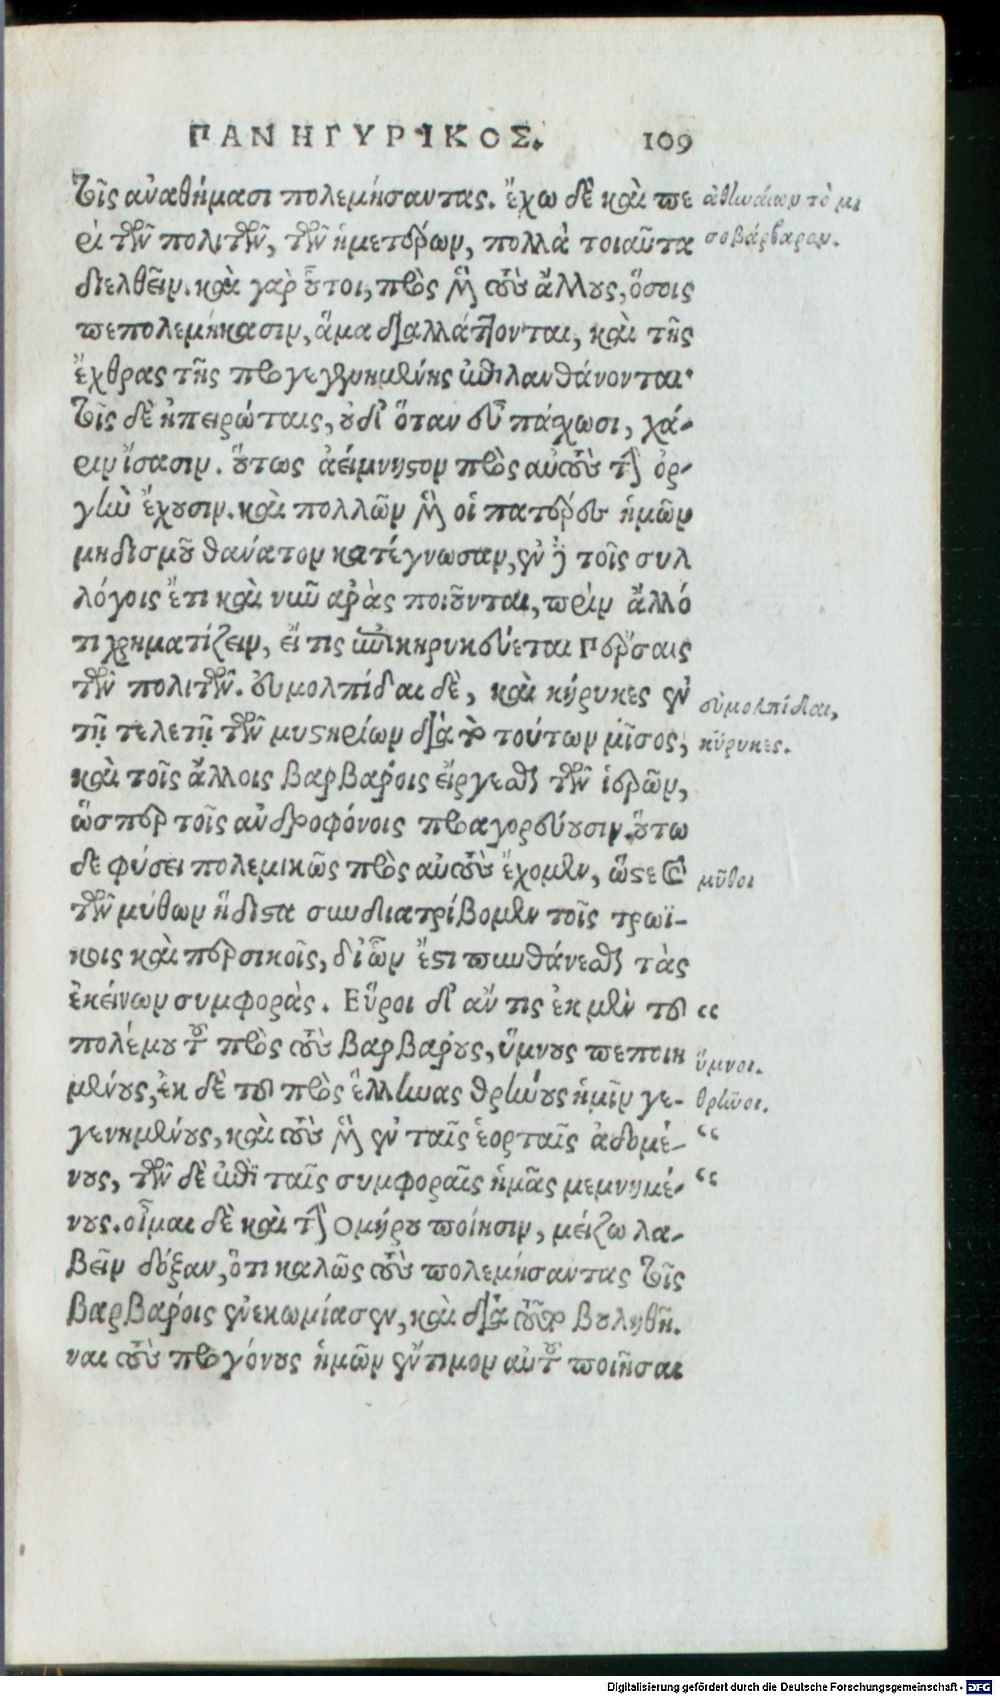 ΠΑΝΗΓΥΡΙΚΟΣ. 109
τοῖς ἀναθήμασι πολεμήσαντας. ἔχω δὲ καὶ πε
ρὶ τῶν πολιτῶν, τῶν ἡμετέρων, πολλὰ τοιαῦτα
διελθεῖν. καὶ γὰρ οὗτοι, πρὸς μὲν τοὺς ἄλλους, ὅσοις
πεπολεμήκασιν, ἅμα διαλλάττονται, καὶ τῆς
ἔχθρας τῆς προγεγενημένης ἐπιλανθάνονται·
τοῖς δὲ ἠπειρώταις, οὐδ' ὅταν εὖ πάσχωσι, χά-
ριν ἴσασιν. οὕτως ἀείμνηστον πρὸς αὐτοὺς τὴν ὀρ-
γὴν ἔχουσιν. καὶ πολλῶν μὲν οἱ πατέρες ἡμῶν
μηδισμοῦ θάνατον κατέγνωσαν, ἐν δὲ τοῖς συλ
λόγοις ἔτι καὶ νῦν ἀρὰς ποιοῦνται, πρὶν ἄλλό
τι χρηματίζειν, εἴ τις ἐπικηρυκεύεται Πέρσαις
τῶν πολιτῶν. Εὐμολπίδαι δὲ, καὶ κήρυκες ἐν
τῇ τελετῇ τῶν μυστηρίων διὰ τὸ τούτων μῖσος,
καὶ τοῖς ἄλλοις βαρβάροις εἴργεσθαι τῶν ἱερῶν,
ὥσπερ τοῖς ἀνδροφόνοις προαγορεύουσιν. οὕτω
δὲ φύσει πολεμικῶς πρὸς αὐτοὺς ἔχομεν, ὥστε καὶ
τῶν μύθων ἥδιστα συνδιατρίβομεν τοῖς τρωϊ-
κοις καὶ περσικοῖς, δι' ὧν ἔστι πυνθάνεσθαι τὰς
ἐκείνων συμφορὰς. Εὕροι δ' ἄν τις ἐκ μὲν τοῦ
πολέμου τοῦ πρὸς τοὺς βαρβάρους, ὕμνους πεποιη
μένους, ἐκ δὲ τοῦ πρὸς ἕλληνας θρήνους ἡμῖν γε-
γενημένους, καὶ τοὺς μὲν ἐν ταῖς ἑορταῖς ᾀδομέ-
νους, τῶν δὲ ἐπὶ ταῖς συμφοραῖς ἡμᾶς μεμνημέ-
νους. οἶμαι δὲ καὶ τὴν Ομήρου ποίησιν, μείζω λα-
βεῖν δόξαν, ὅτι καλῶς τοὺς πολεμήσαντας τοῖς
βαρβάροις ἐνεκωμίασεν, καὶ διὰ τοῦτο βουληθῆ-
ναι τοὺς προγόνους ἡμῶν ἔντιμον αὐτοῦ ποιῆσαι
ἀθηναίων τὸ μι
σοβάρβαρον.
εὐμολπίδαι,
κήρυκες.
μῦθοι
“
ὕμνοι.
θρῆνοι.
“
“
Digitalisierung gefördert durch die Deutsche Forschungsgemeinschaft - DFG